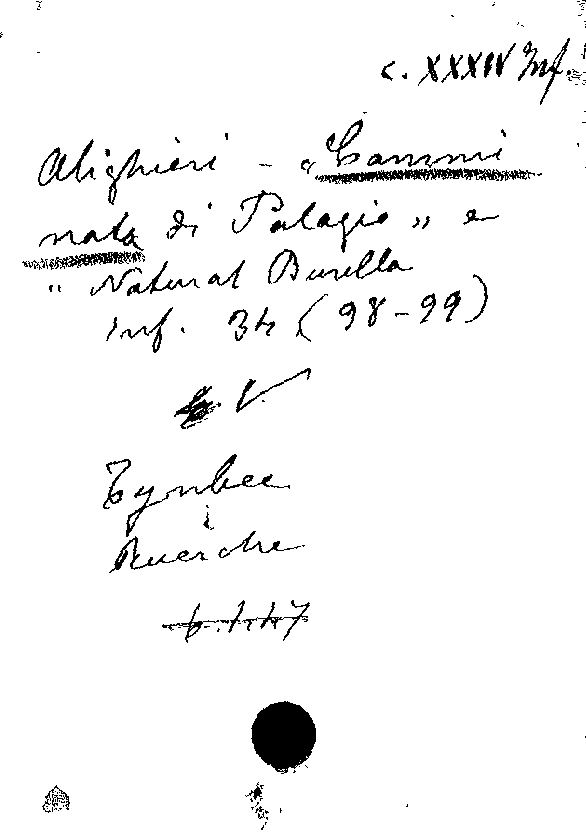 c. XXXIV Inf.
Alighieri - "Cammi
nata di Palagio" e
"Natural Burella
Inf. 34 (98-99)
V
Toynbee
Ricerche